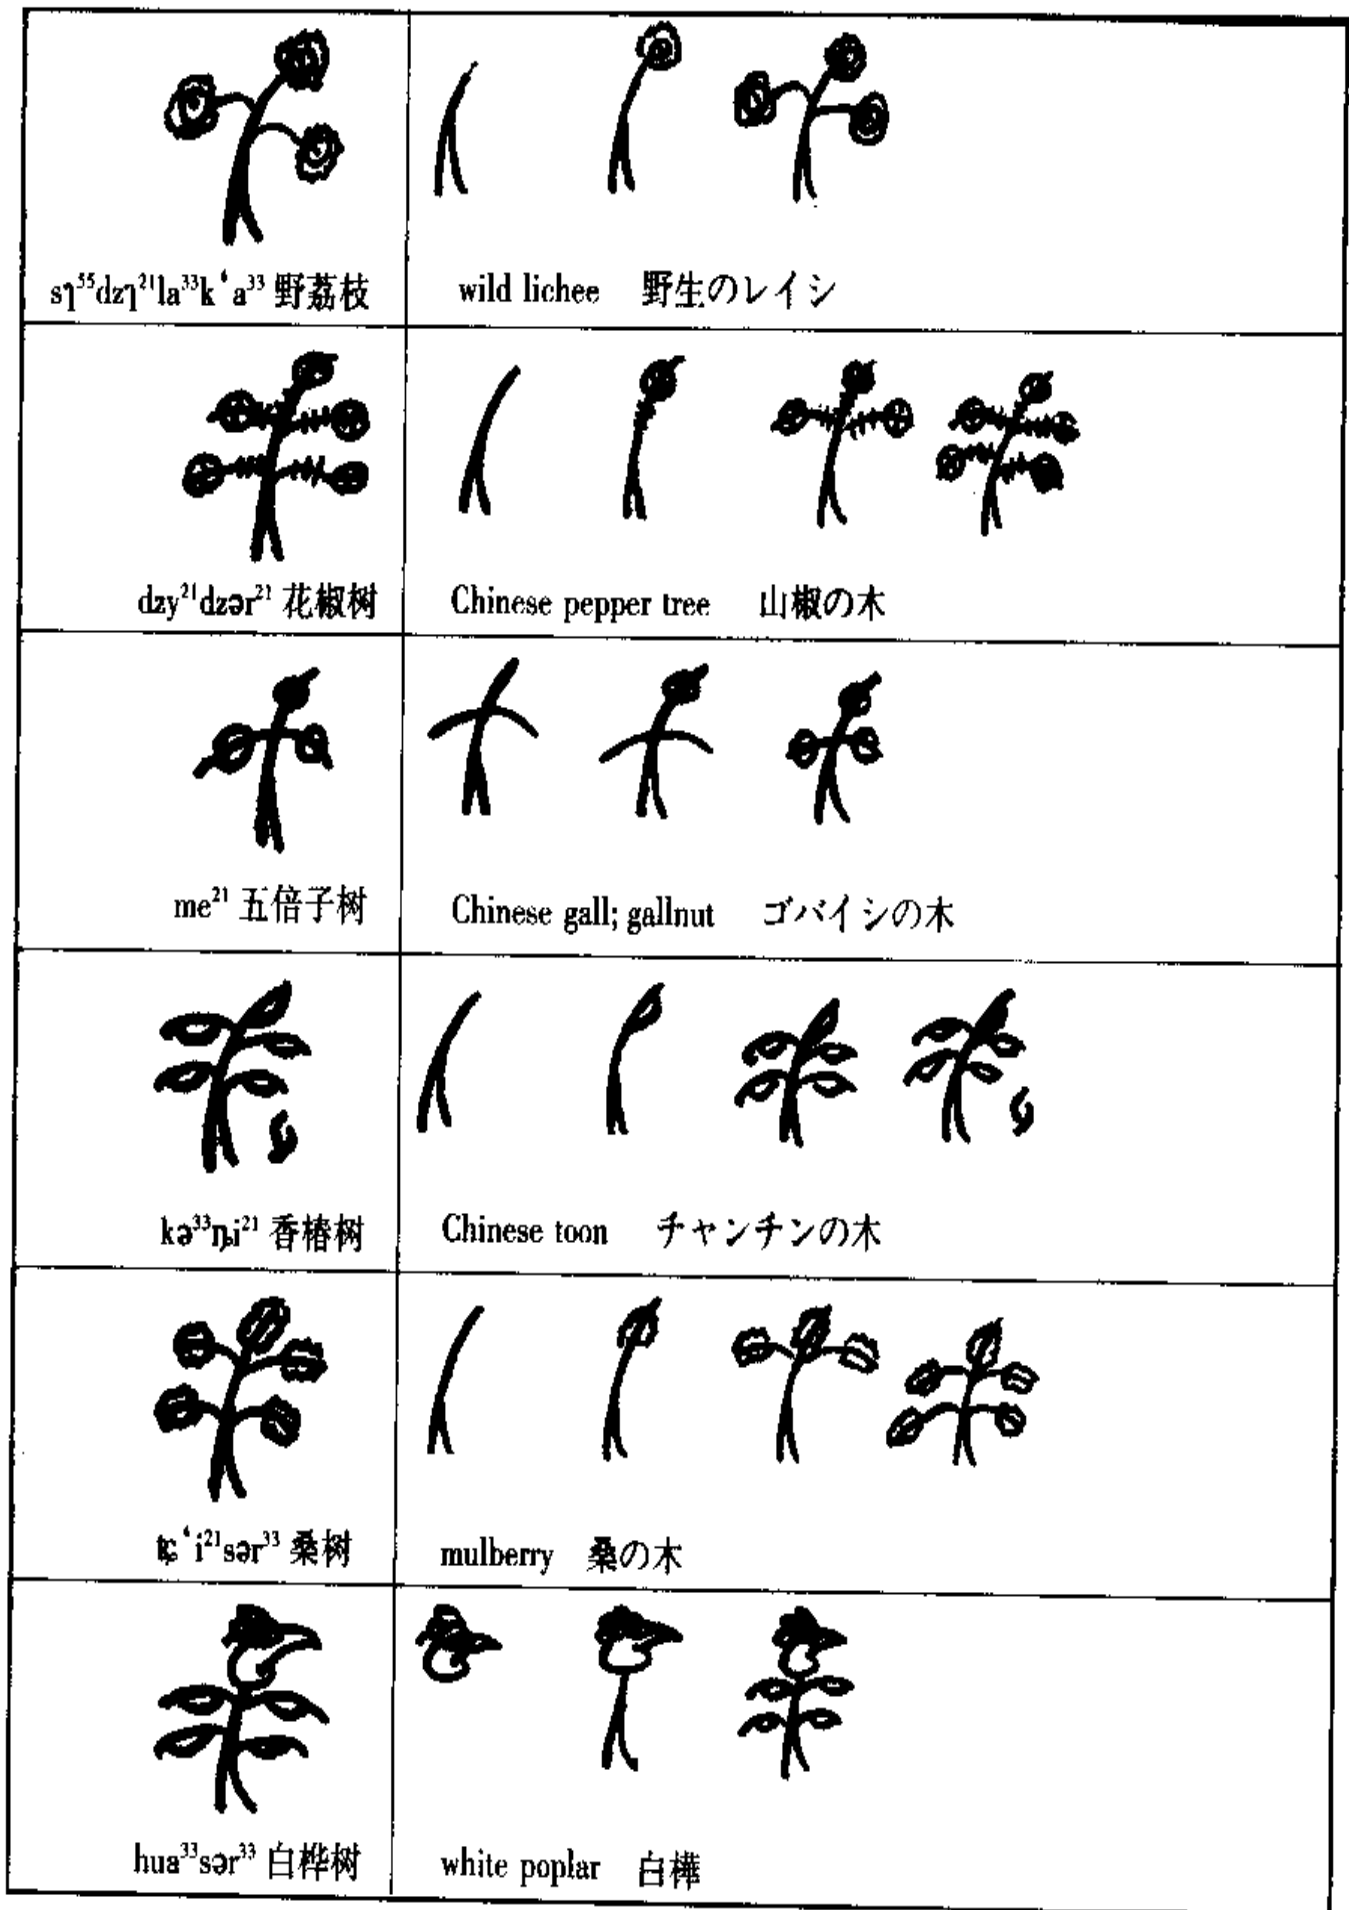 sɿ⁵⁵dzɿ²¹la³³k‘a³³ 野荔枝 wild lichee 野生のレイシ
dzy²¹dzər²¹ 花椒树 Chinese pepper tree 山椒の木
me²¹ 五倍子树 Chinese gall; gallnut ゴバイシの木
kə³³ȵi²¹ 香椿树 Chinese toon チャンチンの木
tɕ‘i²¹sər³³ 桑树 mulberry 桑の木
hua³³sər³³ 白桦树 white poplar 白樺